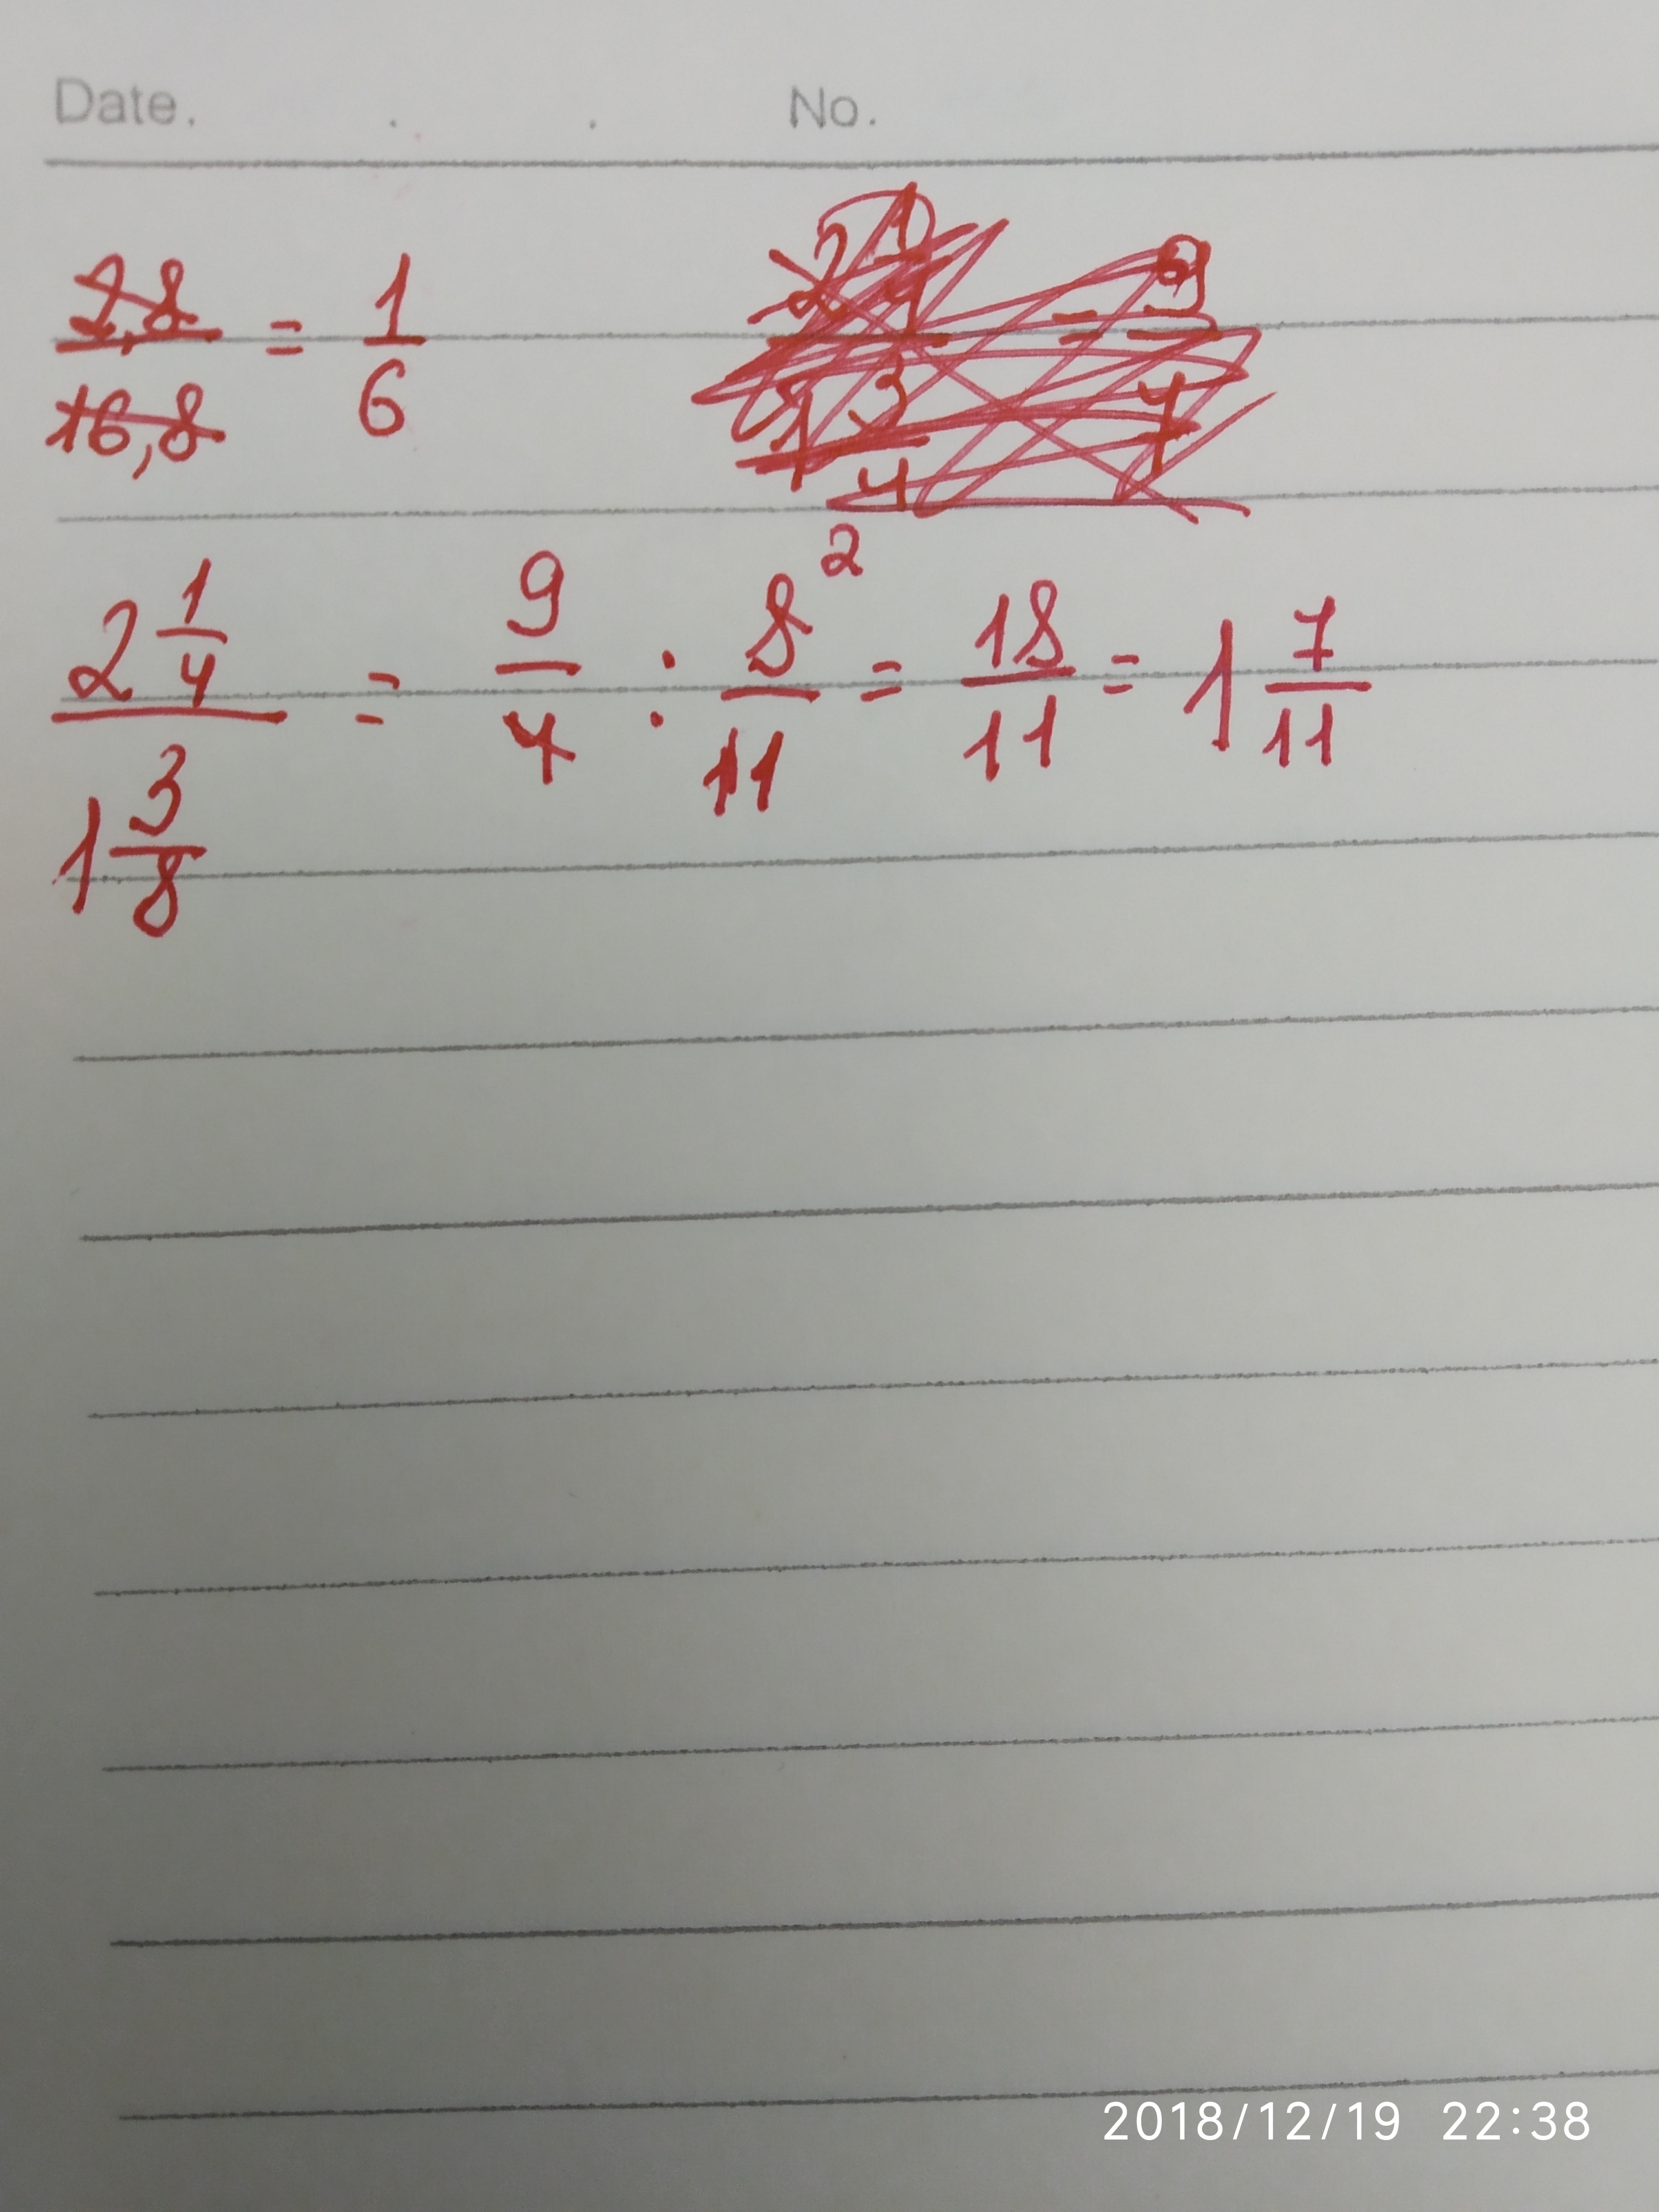 Date. . . No.
2,8/16,8 = 1/6
2 1/4 / 1 3/8 = 9/4 : 8²/11 = 18/11 = 1 7/11
2018/12/19 22:38